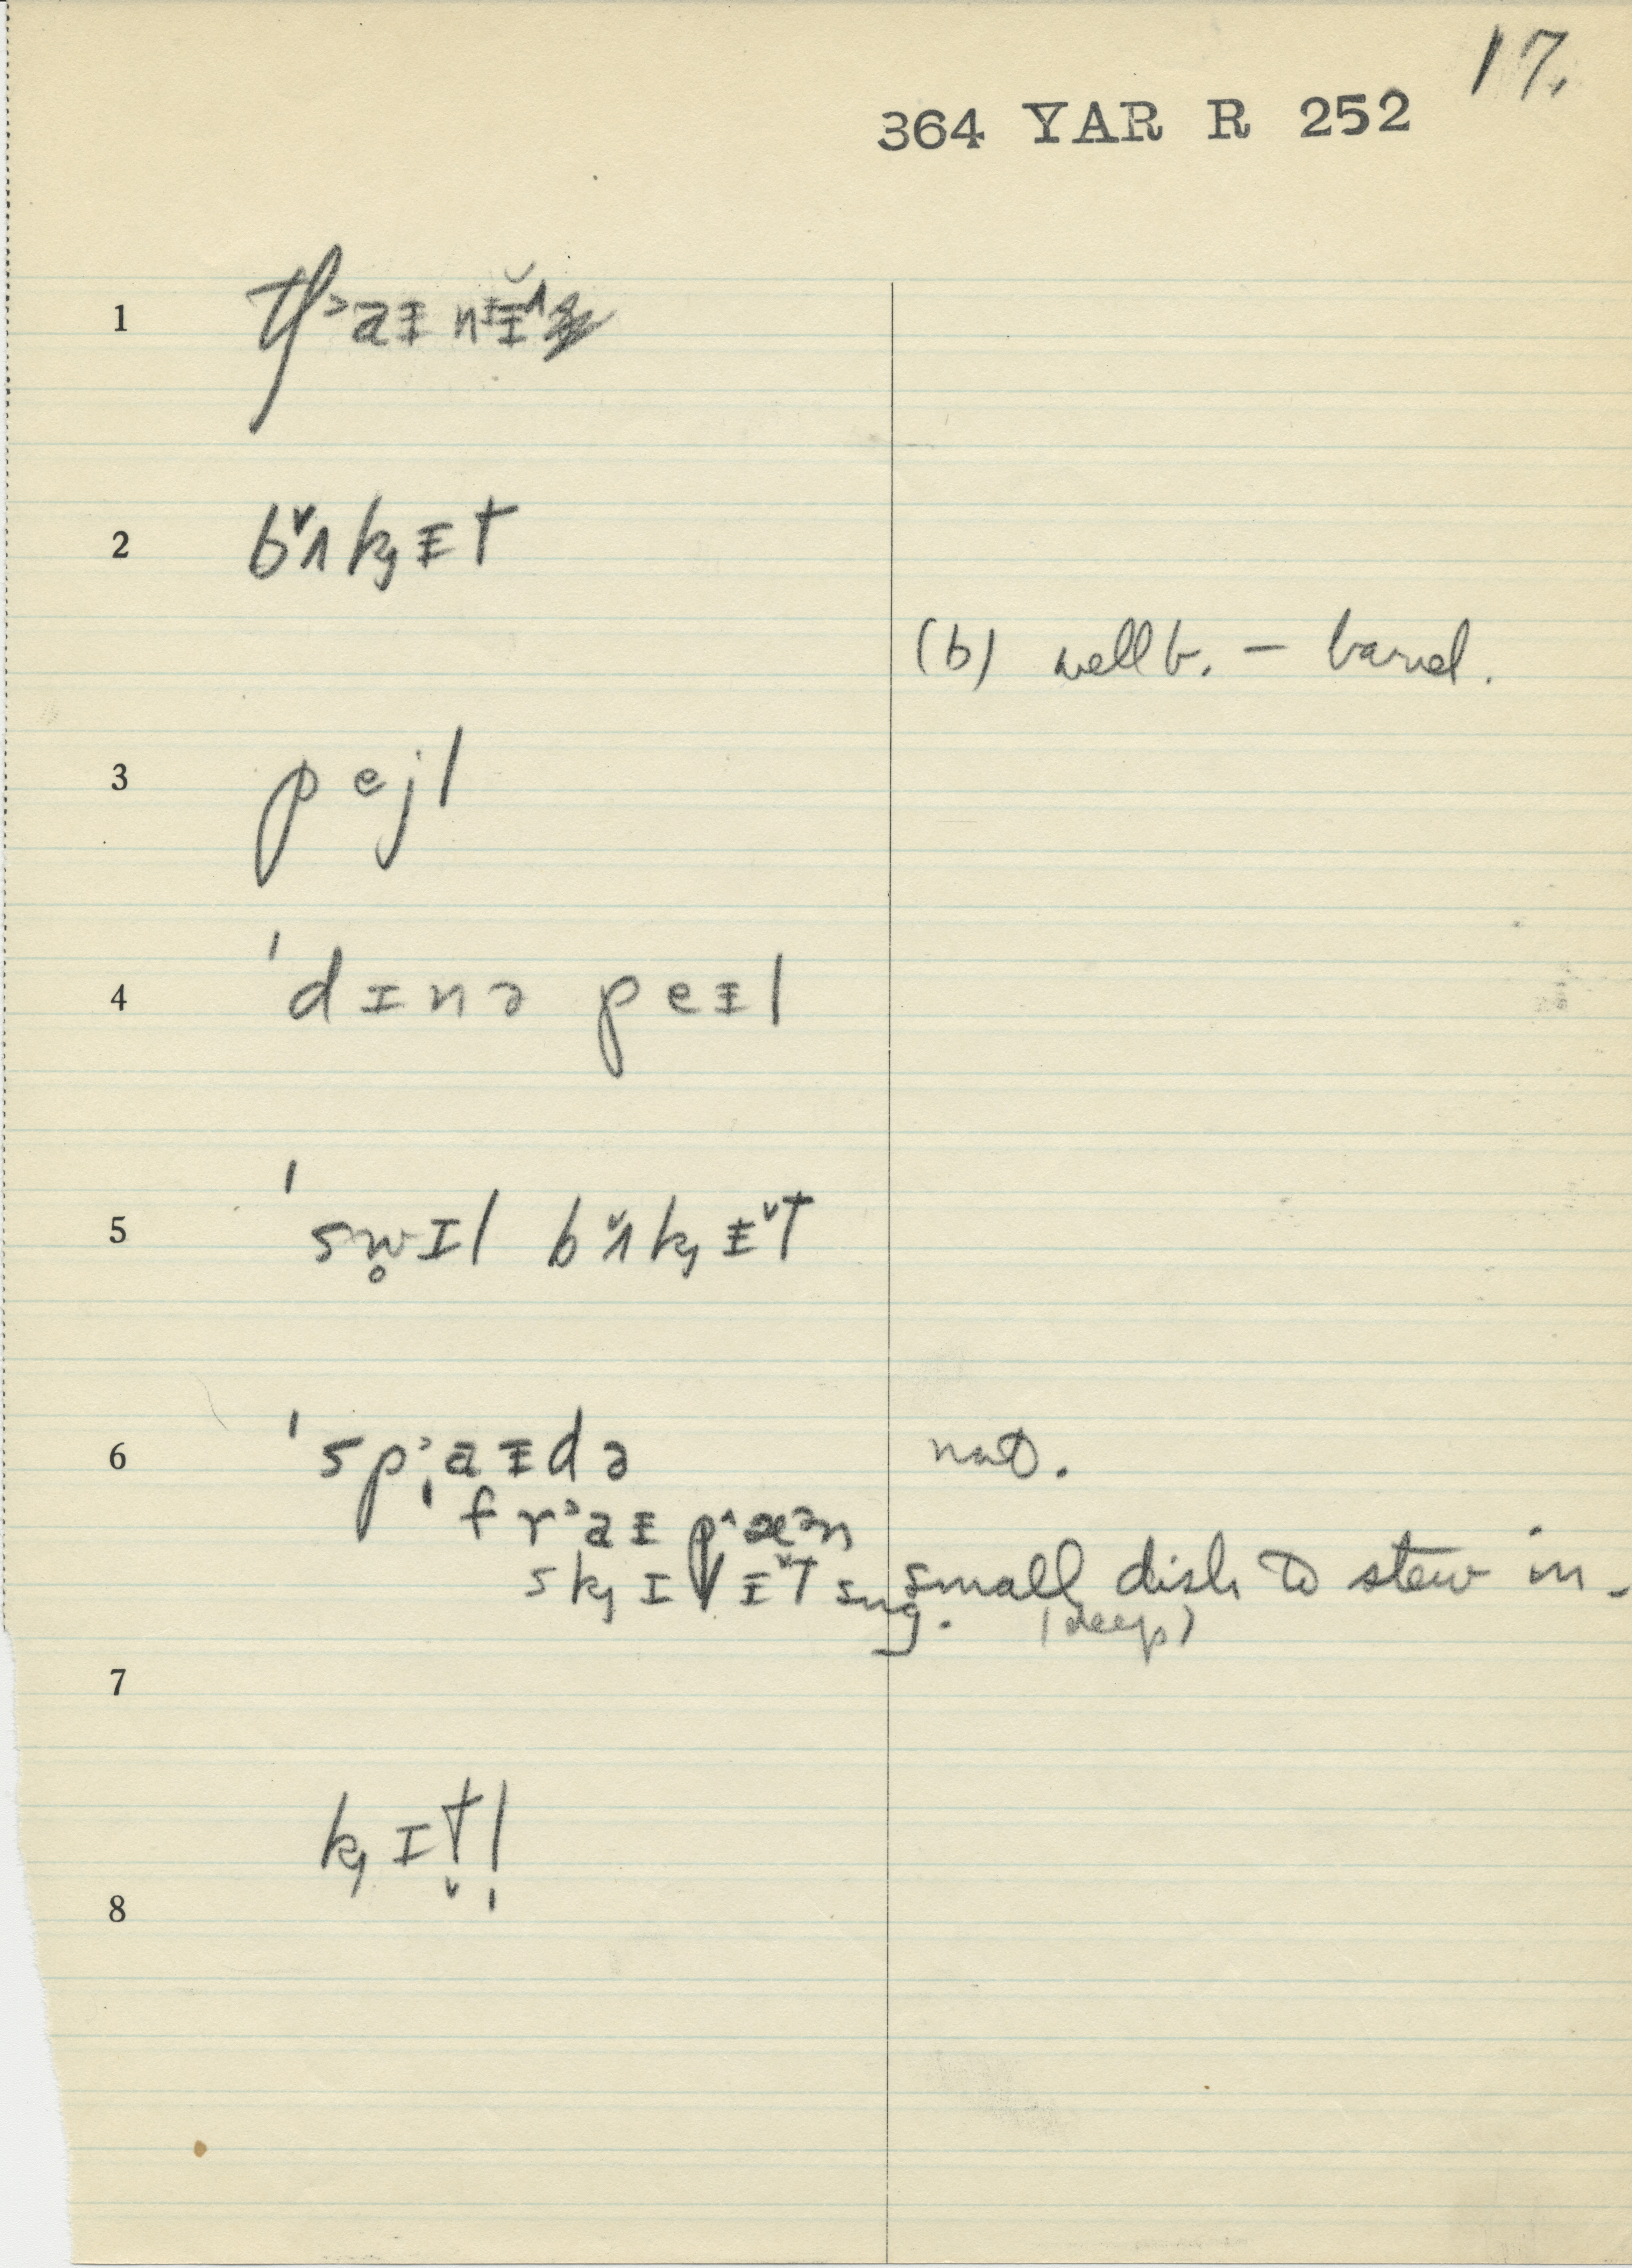 17.
364 YAR R 252
1
2 bʌ̌kɪt
(b) well b. – barrel.
3 pejl
4 ˈdɪnə peɪl
5 ˈsw̥ɪl bʌ̌kɪ̌t
6 ˈspᵓaɪdə nat.
frᵓaɪ pæᵊn
skɪlɪ̌t sug. small dish to stew in –
(deep)
7
kɪt̬l̩
8